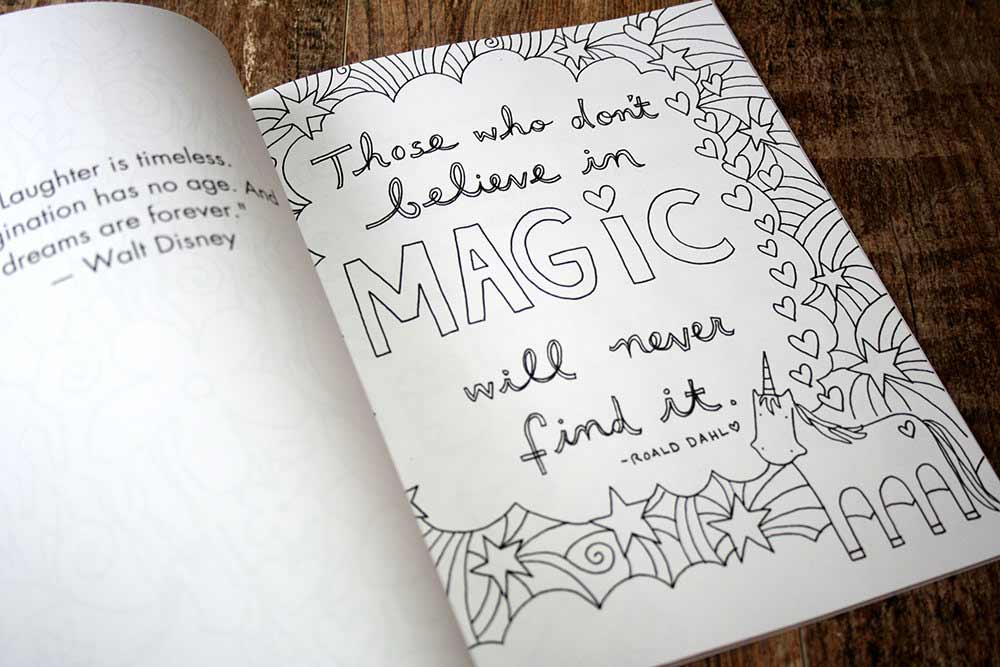 Laughter is timeless.
has no age. And
dreams are forever."
— Walt Disney
Those who don't
believe in
MAGiC
will never
find it.
-ROALD DAHL